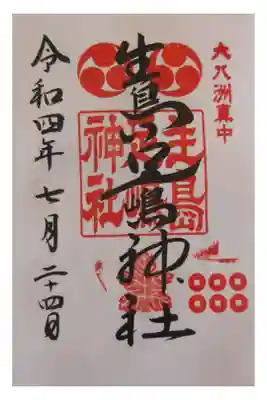 大八洲真中
生島足嶋神社
生島
足嶋
神社
令和四年七月二十四日